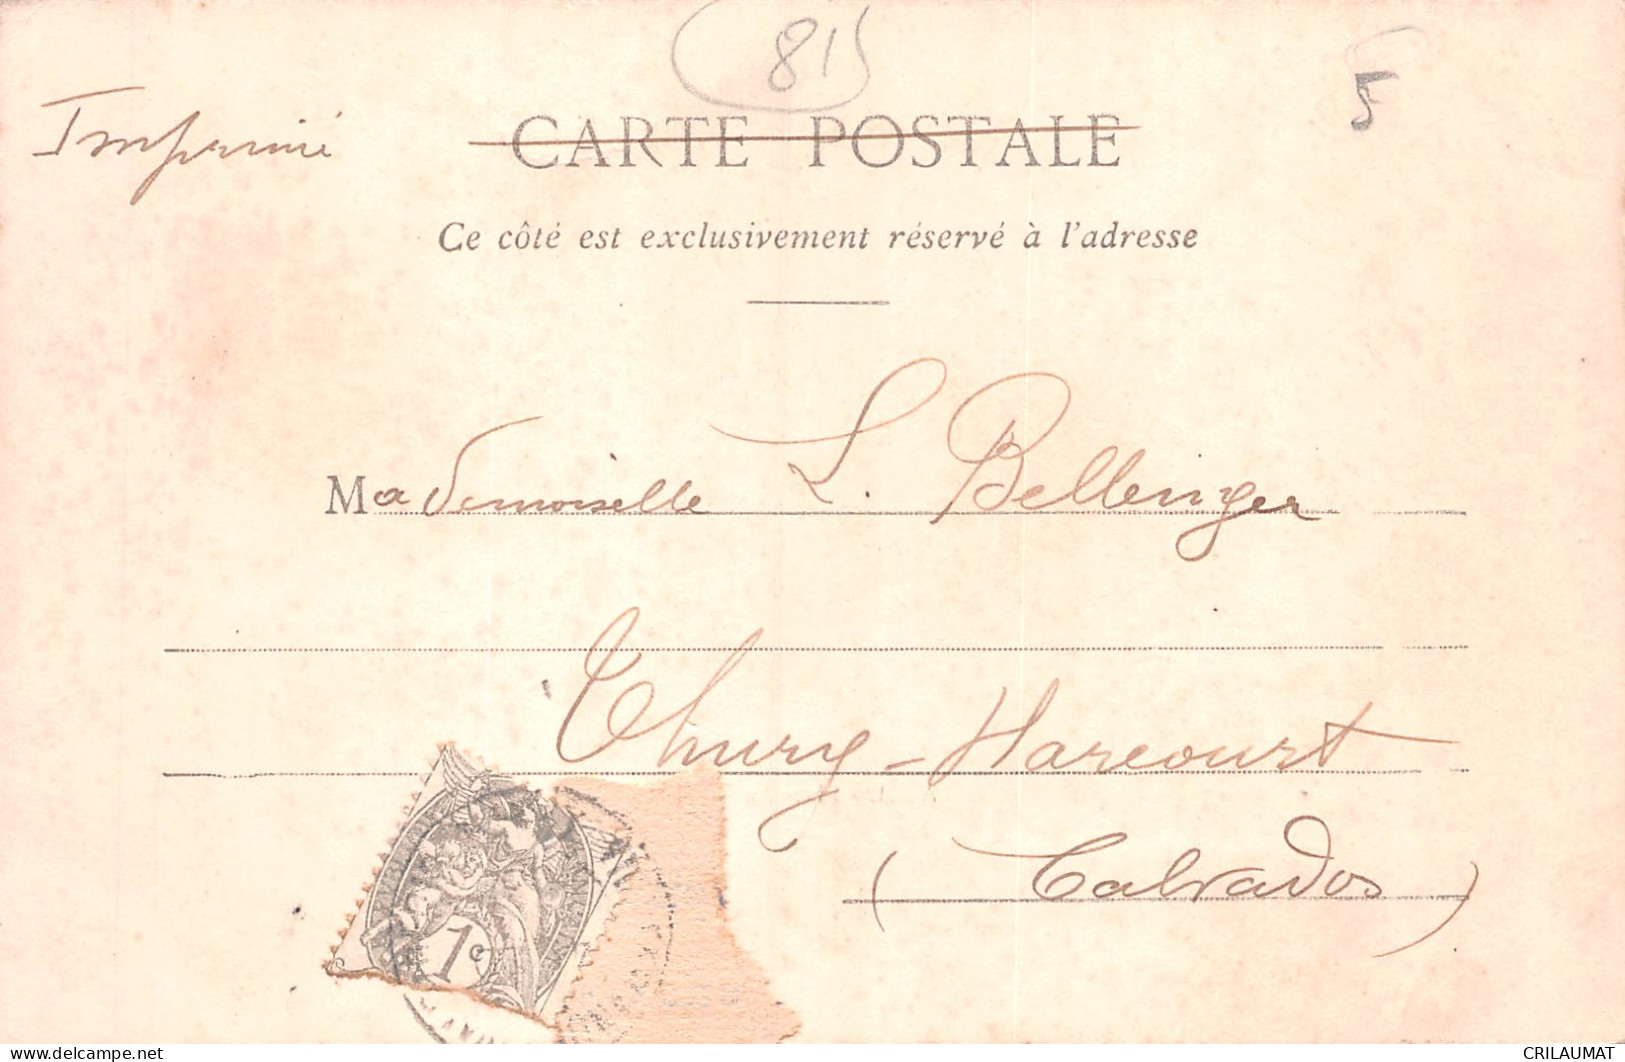 81
5
Imprimé
CARTE POSTALE
Ce côté est exclusivement réservé à l'adresse
Mademoiselle L. Bellenger
Thury-Harcourt
(Calvados)
1c
delcampe.net
CRILAUMAT